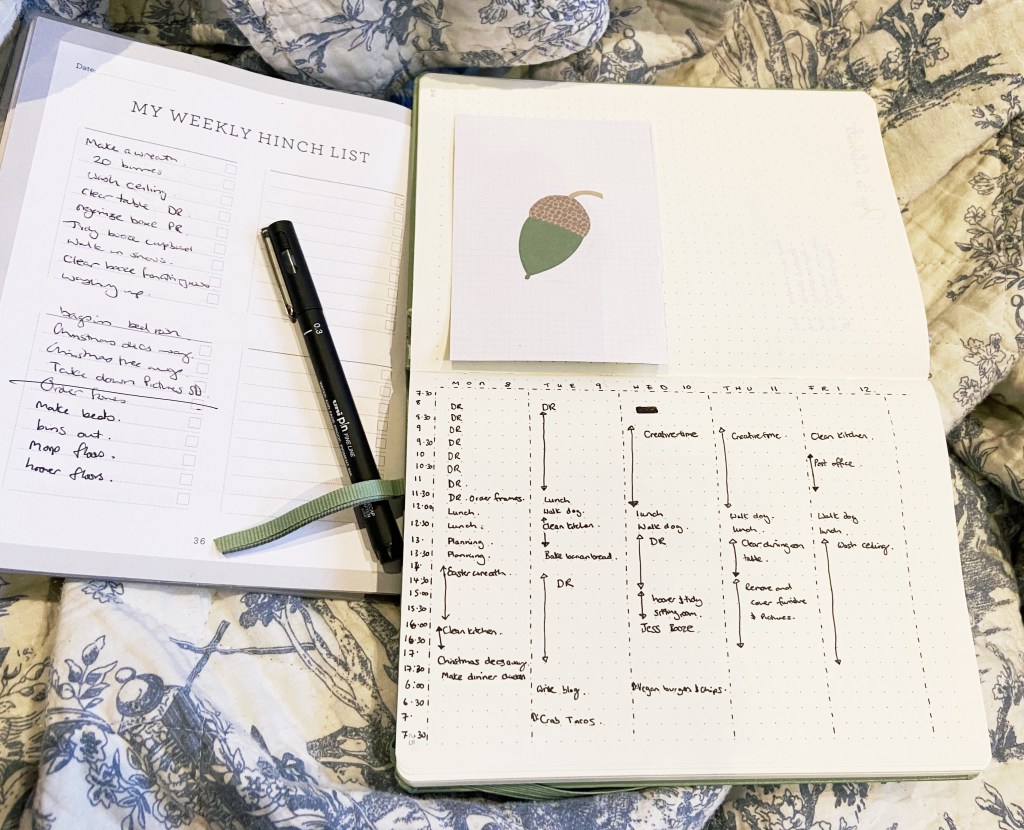 Date
MY WEEKLY HINCH LIST
Make a wreath.
20 bunnies
Wash ceiling.
Clear table DR
organise boxe PR
Tidy booze cupboard
Walk in snow.
Clear booze
washing up.
bags in bedroom
Christmas decs away.
Christmas tree away
Take down Pictures SD
Order frames
Make beds.
bins out.
Mop floors.
hoover floors.
36
0.3
uni pin FINE LINE
MON 8 TUE 9 WED 10 THU 11 FRI 12
7.30
8 DR DR
8.30 DR
9 DR Creative time Creative time. Clean kitchen.
9.30 DR
10 DR Post office.
10.30 DR
11 DR
11.30 DR. Order frames. Lunch
12.00 Lunch. Walk dog. lunch Walk dog. Walk dog
12.30 Lunch. Clean kitchen. Walk dog. lunch. lunch
13. Planning. DR Clear dining room Wash ceiling.
13.30 Planning. Bake banana bread. table.
14. Easter wreath.
14.30 DR Remove and
15.00 hoover & tidy cover furniture
15.30 sitting room. & Pictures.
16.00 Clean kitchen. Jess Booze.
16.30
17.
17.30 Christmas decs away.
Make dinner
6.00 Write blog. Vegan burgers & chips.
6.30
7. Crab Tacos.
7.30